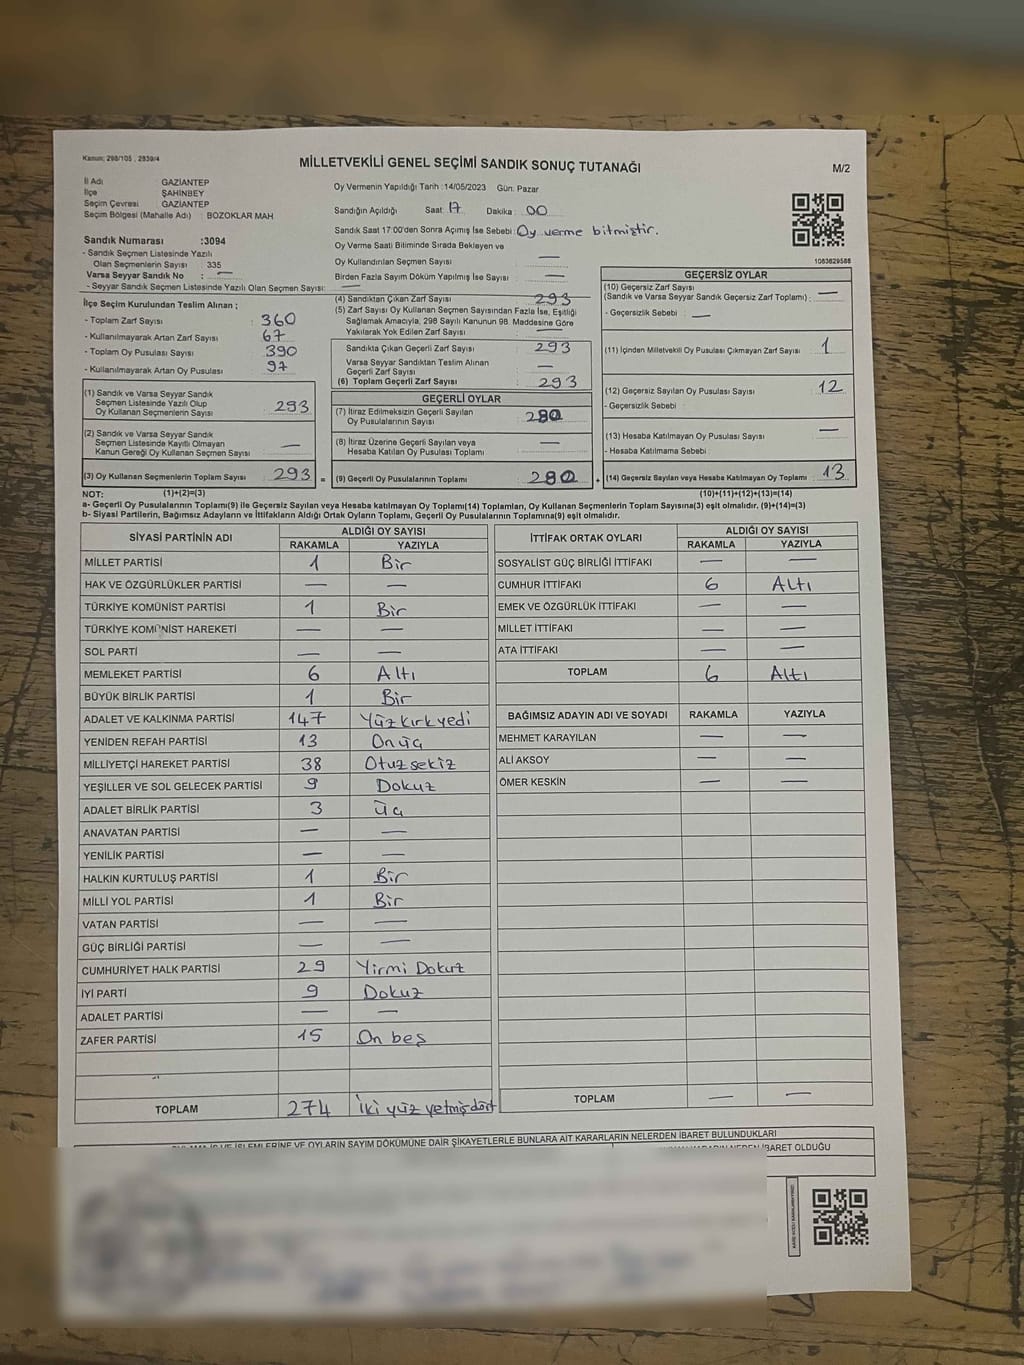 Kanun; 298/105 , 2839/4
MİLLETVEKİLİ GENEL SEÇİMİ SANDIK SONUÇ TUTANAĞI
M/2
İl Adı GAZİANTEP
İlçe ŞAHİNBEY
Seçim Çevresi GAZİANTEP
Seçim Bölgesi (Mahalle Adı) : BOZOKLAR MAH
Sandık Numarası :3094
- Sandık Seçmen Listesinde Yazılı
Olan Seçmenlerin Sayısı : 335
Varsa Seyyar Sandık No : —
- Seyyar Sandık Seçmen Listesinde Yazılı Olan Seçmen Sayısı: —
Oy Vermenin Yapıldığı Tarih :14/05/2023 Gün: Pazar
Sandığın Açıldığı Saat : 17 Dakika : 00
Sandık Saat 17:00'den Sonra Açımış İse Sebebi : Oy verme bitmiştir.
Oy Verme Saati Bitiminde Sırada Bekleyen ve
Oy Kullandırılan Seçmen Sayısı : —
Birden Fazla Sayım Döküm Yapılmış İse Sayısı : —
1083829588
İlçe Seçim Kurulundan Teslim Alınan ;
- Toplam Zarf Sayısı : 360
- Kullanılmayarak Artan Zarf Sayısı : 67
- Toplam Oy Pusulası Sayısı : 390
- Kullanılmayarak Artan Oy Pusulası : 97
(1) Sandık ve Varsa Seyyar Sandık
Seçmen Listesinde Yazılı Olup
Oy Kullanan Seçmenlerin Sayısı : 293
(2) Sandık ve Varsa Seyyar Sandık
Seçmen Listesinde Kayıtlı Olmayan
Kanun Gereği Oy Kullanan Seçmen Sayısı : —
(3) Oy Kullanan Seçmenlerin Toplam Sayısı : 293 =
(4) Sandıktan Çıkan Zarf Sayısı : 293
(5) Zarf Sayısı Oy Kullanan Seçmen Sayısından Fazla İse, Eşitliği
Sağlamak Amacıyla, 298 Sayılı Kanunun 98. Maddesine Göre
Yakılarak Yok Edilen Zarf Sayısı : —
Sandıkta Çıkan Geçerli Zarf Sayısı : 293
Varsa Seyyar Sandıktan Teslim Alınan
Geçerli Zarf Sayısı : —
(6) Toplam Geçerli Zarf Sayısı : 293
GEÇERLİ OYLAR
(7) İtiraz Edilmeksizin Geçerli Sayılan
Oy Pusulalarının Sayısı : 280
(8) İtiraz Üzerine Geçerli Sayılan veya
Hesaba Katılan Oy Pusulası Toplamı : —
(9) Geçerli Oy Pusulalarının Toplamı : 280 +
GEÇERSİZ OYLAR
(10) Geçersiz Zarf Sayısı
(Sandık ve Varsa Seyyar Sandık Geçersiz Zarf Toplamı) : —
- Geçersizlik Sebebi : —
(11) İçinden Milletvekili Oy Pusulası Çıkmayan Zarf Sayısı : 1
(12) Geçersiz Sayılan Oy Pusulası Sayısı : 12
- Geçersizlik Sebebi :
(13) Hesaba Katılmayan Oy Pusulası Sayısı : —
- Hesaba Katılmama Sebebi :
(14) Geçersiz Sayılan veya Hesaba Katılmayan Oy Toplamı : 13
NOT: (1)+(2)=(3) (10)+(11)+(12)+(13)=(14)
a- Geçerli Oy Pusulalarının Toplamı(9) ile Geçersiz Sayılan veya Hesaba katılmayan Oy Toplamı(14) Toplamları, Oy Kullanan Seçmenlerin Toplam Sayısına(3) eşit olmalıdır, (9)+(14)=(3)
b- Siyasi Partilerin, Bağımsız Adayların ve İttifakların Aldığı Ortak Oyların Toplamı, Geçerli Oy Pusulalarının Toplamına(9) eşit olmalıdır.
SİYASİ PARTİNİN ADI ALDIĞI OY SAYISI
RAKAMLA YAZIYLA
MİLLET PARTİSİ 1 Bir
HAK VE ÖZGÜRLÜKLER PARTİSİ — —
TÜRKİYE KOMÜNİST PARTİSİ 1 Bir
TÜRKİYE KOMÜNİST HAREKETİ — —
SOL PARTİ — —
MEMLEKET PARTİSİ 6 Altı
BÜYÜK BİRLİK PARTİSİ 1 Bir
ADALET VE KALKINMA PARTİSİ 147 Yüzkırkyedi
YENİDEN REFAH PARTİSİ 13 Onüç
MİLLİYETÇİ HAREKET PARTİSİ 38 Otuzsekiz
YEŞİLLER VE SOL GELECEK PARTİSİ 9 Dokuz
ADALET BİRLİK PARTİSİ 3 Üç
ANAVATAN PARTİSİ — —
YENİLİK PARTİSİ — —
HALKIN KURTULUŞ PARTİSİ 1 Bir
MİLLİ YOL PARTİSİ 1 Bir
VATAN PARTİSİ — —
GÜÇ BİRLİĞİ PARTİSİ — —
CUMHURİYET HALK PARTİSİ 29 Yirmi Dokuz
İYİ PARTİ 9 Dokuz
ADALET PARTİSİ — —
ZAFER PARTİSİ 15 On beş
TOPLAM 274 İki yüz yetmişdört
İTTİFAK ORTAK OYLARI ALDIĞI OY SAYISI
RAKAMLA YAZIYLA
SOSYALİST GÜÇ BİRLİĞİ İTTİFAKI — —
CUMHUR İTTİFAKI 6 Altı
EMEK VE ÖZGÜRLÜK İTTİFAKI — —
MİLLET İTTİFAKI — —
ATA İTTİFAKI — —
TOPLAM 6 Altı
BAĞIMSIZ ADAYIN ADI VE SOYADI RAKAMLA YAZIYLA
MEHMET KARAYILAN — —
ALİ AKSOY — —
ÖMER KESKİN — —
TOPLAM — —
İŞLEMLERİNE VE OYLARIN SAYIM DÖKÜMÜNE DAİR ŞİKAYETLERLE BUNLARA AİT KARARLARIN NELERDEN İBARET BULUNDUKLARI
İBARET OLDUĞU